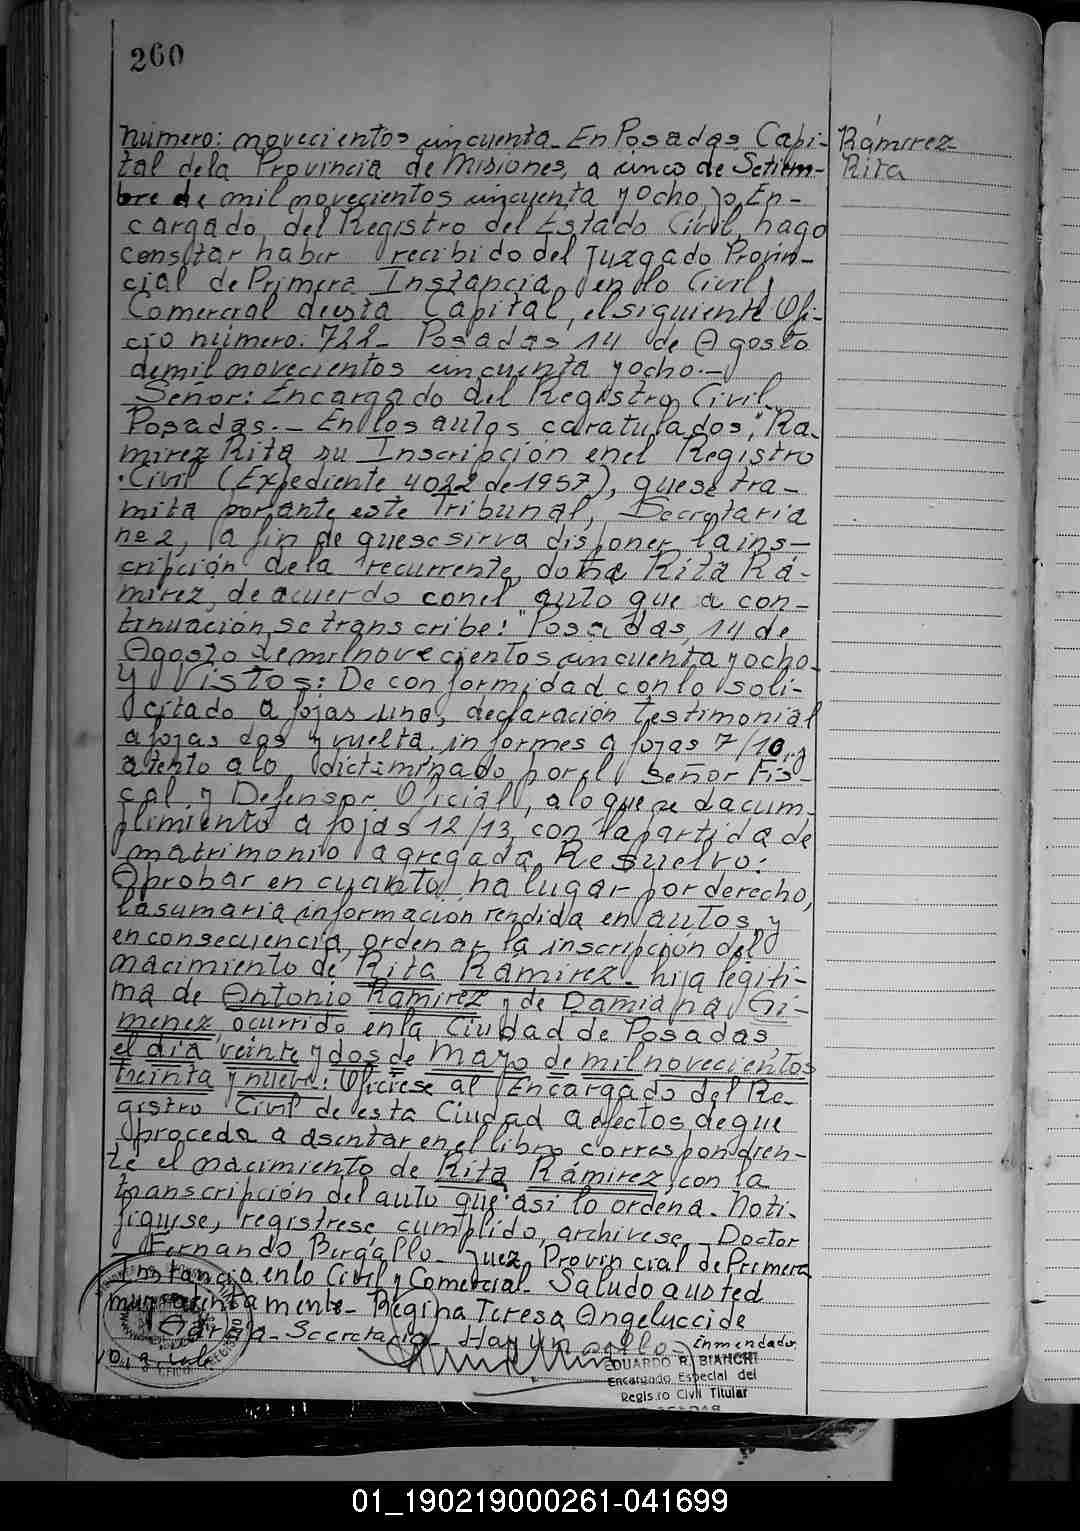 260
Número: novecientos cincuenta. En Posadas, Capi-
tal de la Provincia de Misiones, a cinco de Setiem-
bre de mil novecientos cincuenta y ocho, yo, En-
cargado del Registro del Estado Civil, hago
constar haber recibido del Juzgado Provin-
cial de Primera Instancia en lo Civil y
Comercial de esta Capital, el siguiente Ofi-
cio número: 722- Posadas 14 de Agosto
de mil novecientos cincuenta y ocho.-
Señor: Encargado del Registro Civil
Posadas.- En los autos caratulados, "Ra-
mirez Rita su Inscripción en el Registro
Civil (Expediente 4022 de 1957), que se tra-
mita por ante este Tribunal, Secretaria
nº 2, a fin de que se sirva disponer la ins-
cripción de la recurrente, doña Rita Rá-
mirez, de acuerdo con el auto que a con-
tinuación se transcribe: "Posadas, 14 de
Agosto de mil novecientos cincuenta y ocho-
Y Vistos: De conformidad con lo soli-
citado a fojas uno, declaración testimonial
a fojas dos y vuelta, informes a fojas 7/10, y
atento a lo dictaminado por el Señor Fis-
cal y Defensor Oficial, a lo que se da cum-
plimiento a fojas 12/13, con la partida de
matrimonio agregada, Resuelvo:
Aprobar en cuanto ha lugar por derecho,
la sumaria información rendida en autos, y
en consecuencia, ordenar la inscripción del
nacimiento de Rita Rámirez- hija legiti-
ma de Antonio Ramirez y de Damiana Gi-
menez, ocurrido en la Ciudad de Posadas
el dia veinte y dos de Mayo de mil novecientos
treinta y nueve: Ofíciese al Encargado del Re-
gistro Civil de esta Ciudad a efectos de que
proceda a asentar en el libro correspondien-
te el nacimiento de Rita Rámirez, con la
transcripción del auto que asi lo ordena. Noti-
fiquese, registrese, cumplido, archivese.- Doctor
Fernando Bergallo- Juez Provincial de Primera
Instancia en lo Civil y Comercial- Saludo a usted
muy atentamente- Regina Teresa Angelucci de
García- Secretaria- Hay un sello- Enmendado:
EDUARDO R. BIANCHI
Encargado Especial del
Regis.ro Civil Titular
POSADAS
Rámirez
Rita
01_190219000261-041699